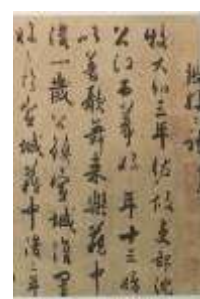 張好〻詩
牧大和三年佐故吏部沈
公江西幕好〻年十三始
以善歌舞來樂籍中
後一歲公鎮宣城復置
好〻於宣城籍中後二年